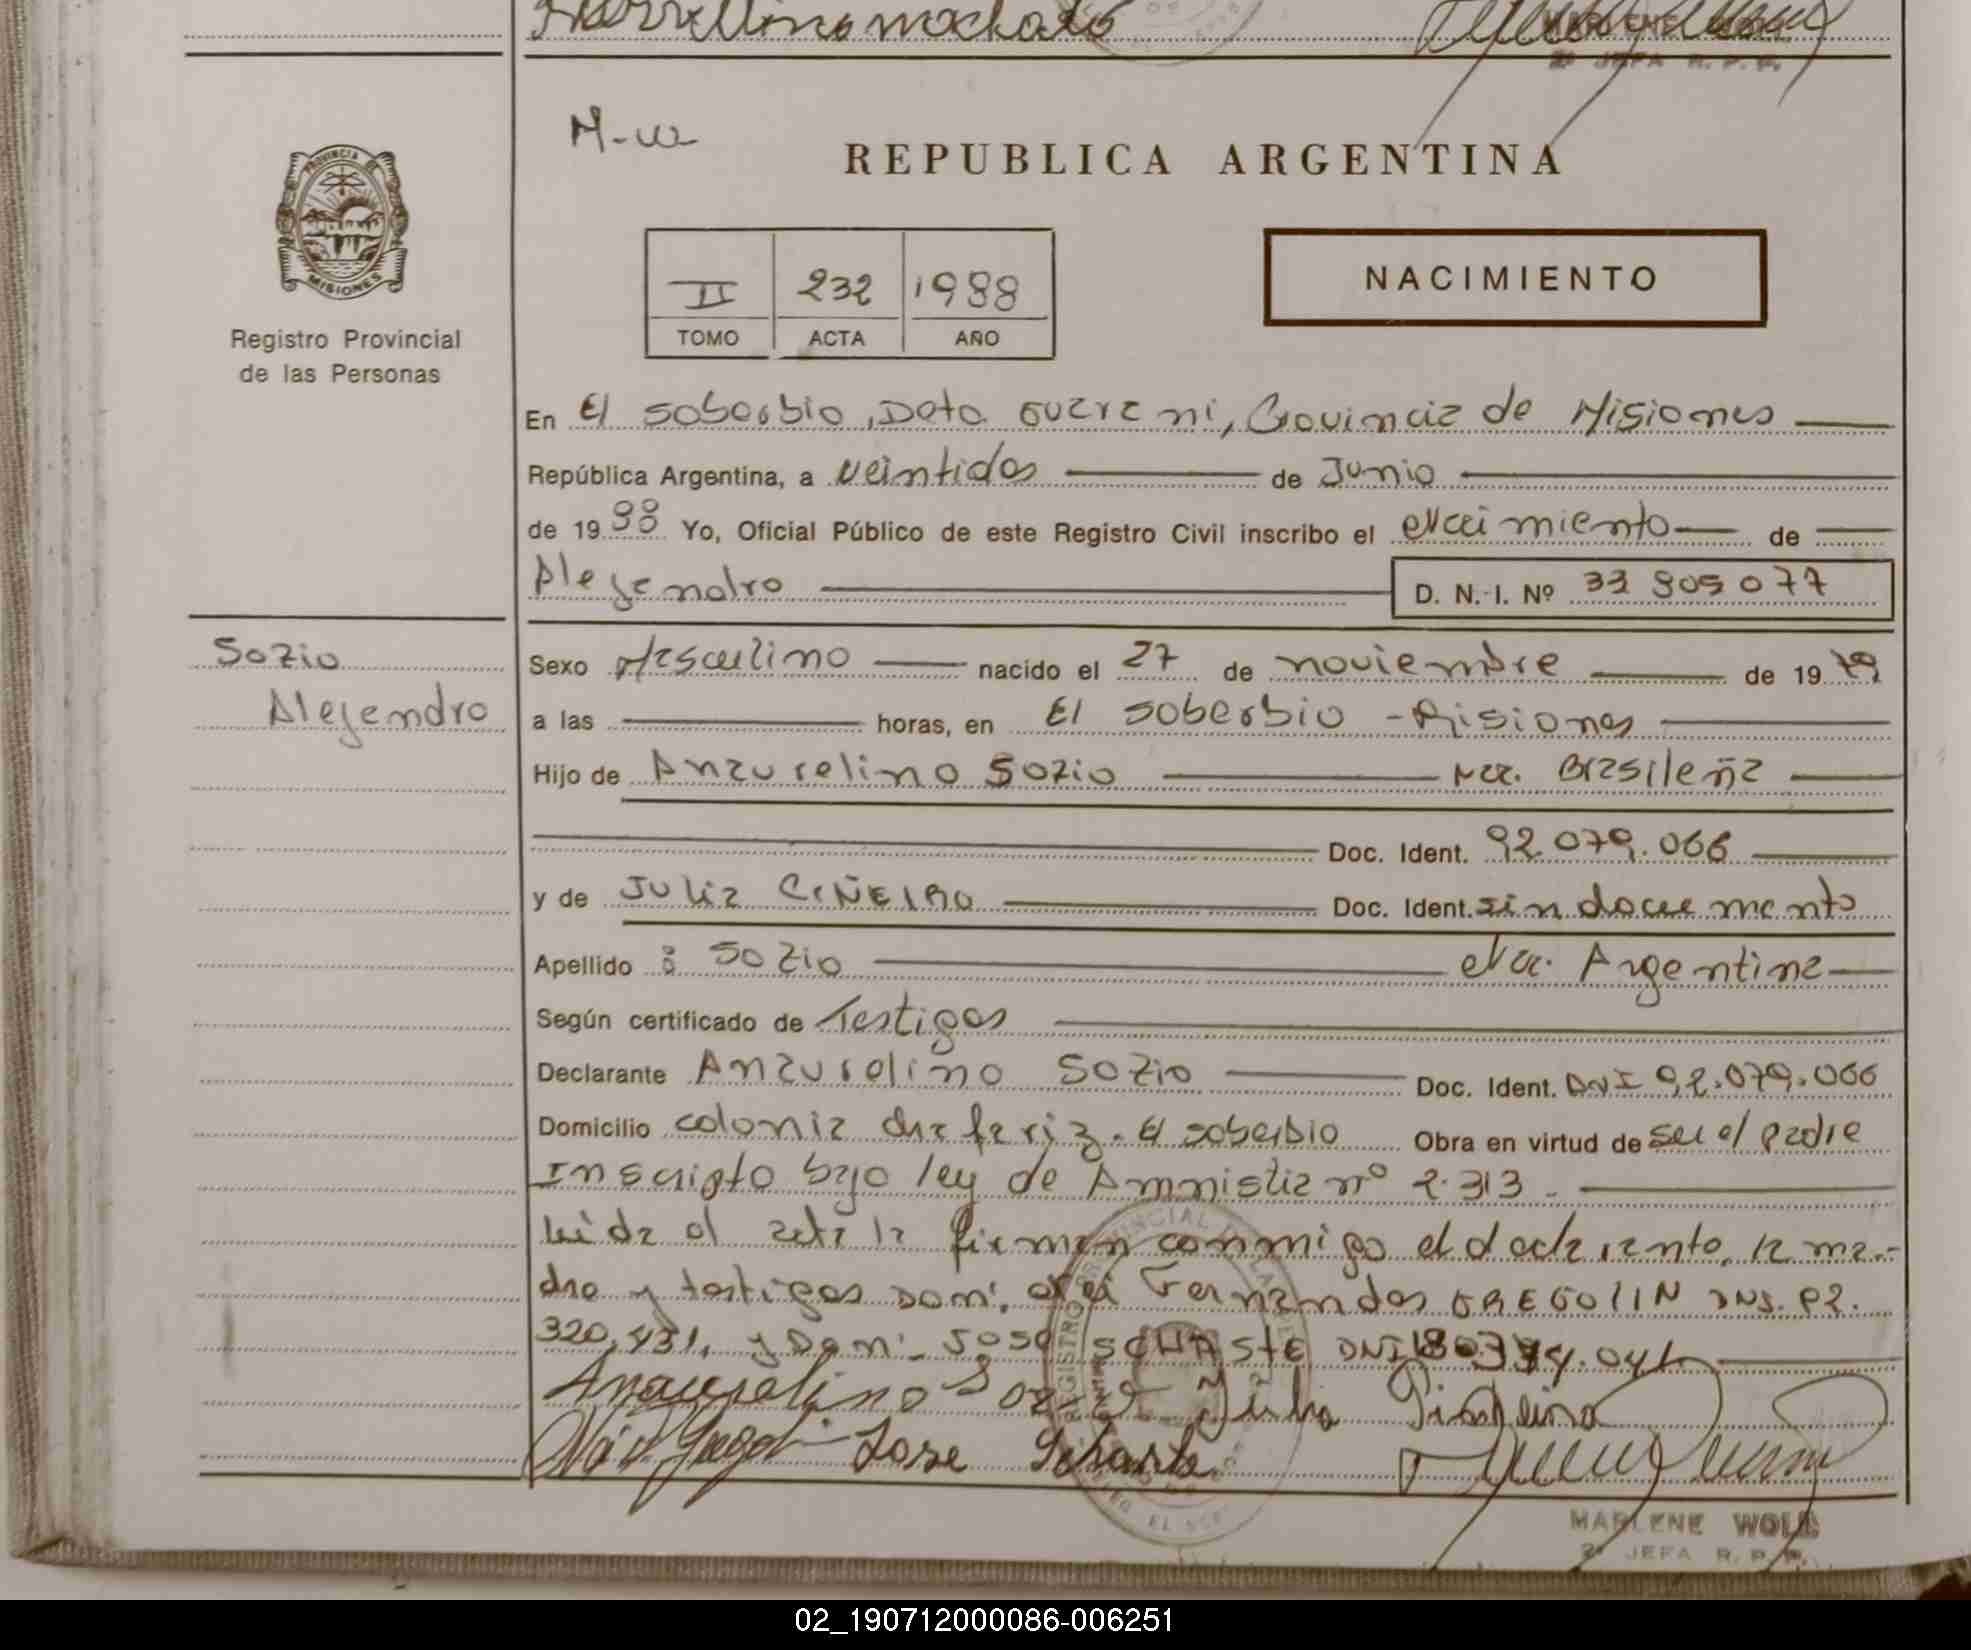 M-W
REPUBLICA ARGENTINA
PROVINCIA DE
MISIONES
Registro Provincial
de las Personas
II 232 1988
TOMO ACTA AÑO
NACIMIENTO
En El Soberbio, Dpto Guarani, Provincia de Misiones
República Argentina, a veintidos de Junio
de 1988 Yo, Oficial Público de este Registro Civil inscribo el Nacimiento de
Alejandro D. N. I. Nº 33 905 077
Sozio
Alejandro
Sexo Masculino nacido el 27 de noviembre de 1979
a las horas, en El Soberbio - Misiones
Hijo de Anaurelino Sozio Nac. Brasileña
Doc. Ident. 92.079.066
y de Julia CIÑEIRA Doc. Ident. sin documento
Apellido : Sozio Nac. Argentina
Según certificado de Testigos
Declarante Anaurelino Sozio Doc. Ident. DNI 92.079.066
Domicilio colonia chafariz. El soberbio Obra en virtud de ser el padre
Inscripto bajo ley de Amnistia nº 2.313.
leida el acta la firman conmigo el declarante, la ma-
dre y testigos Don: Fernandos GREGOLIN DNI. 92.
320.431. y Don: José SCHASTE DNI
Anaurelino Sozio Julia
Jose Schaste
MARLENE WOLL
2º JEFA R. P. P.
02_190712000086-006251